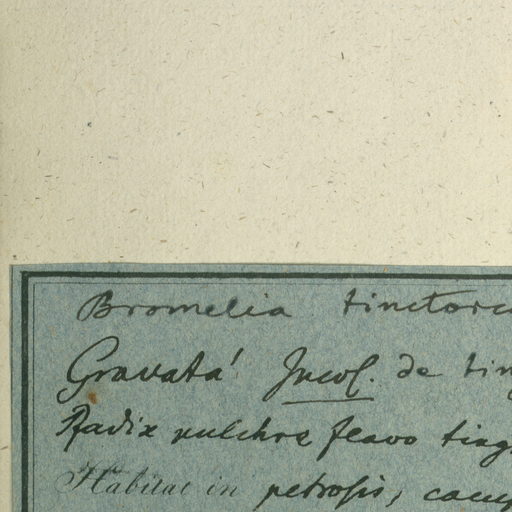 Bromelia tinctori
Gravatá Incol. de tin
Radix pulchre flavo ting
Habitat in petrosis, camp